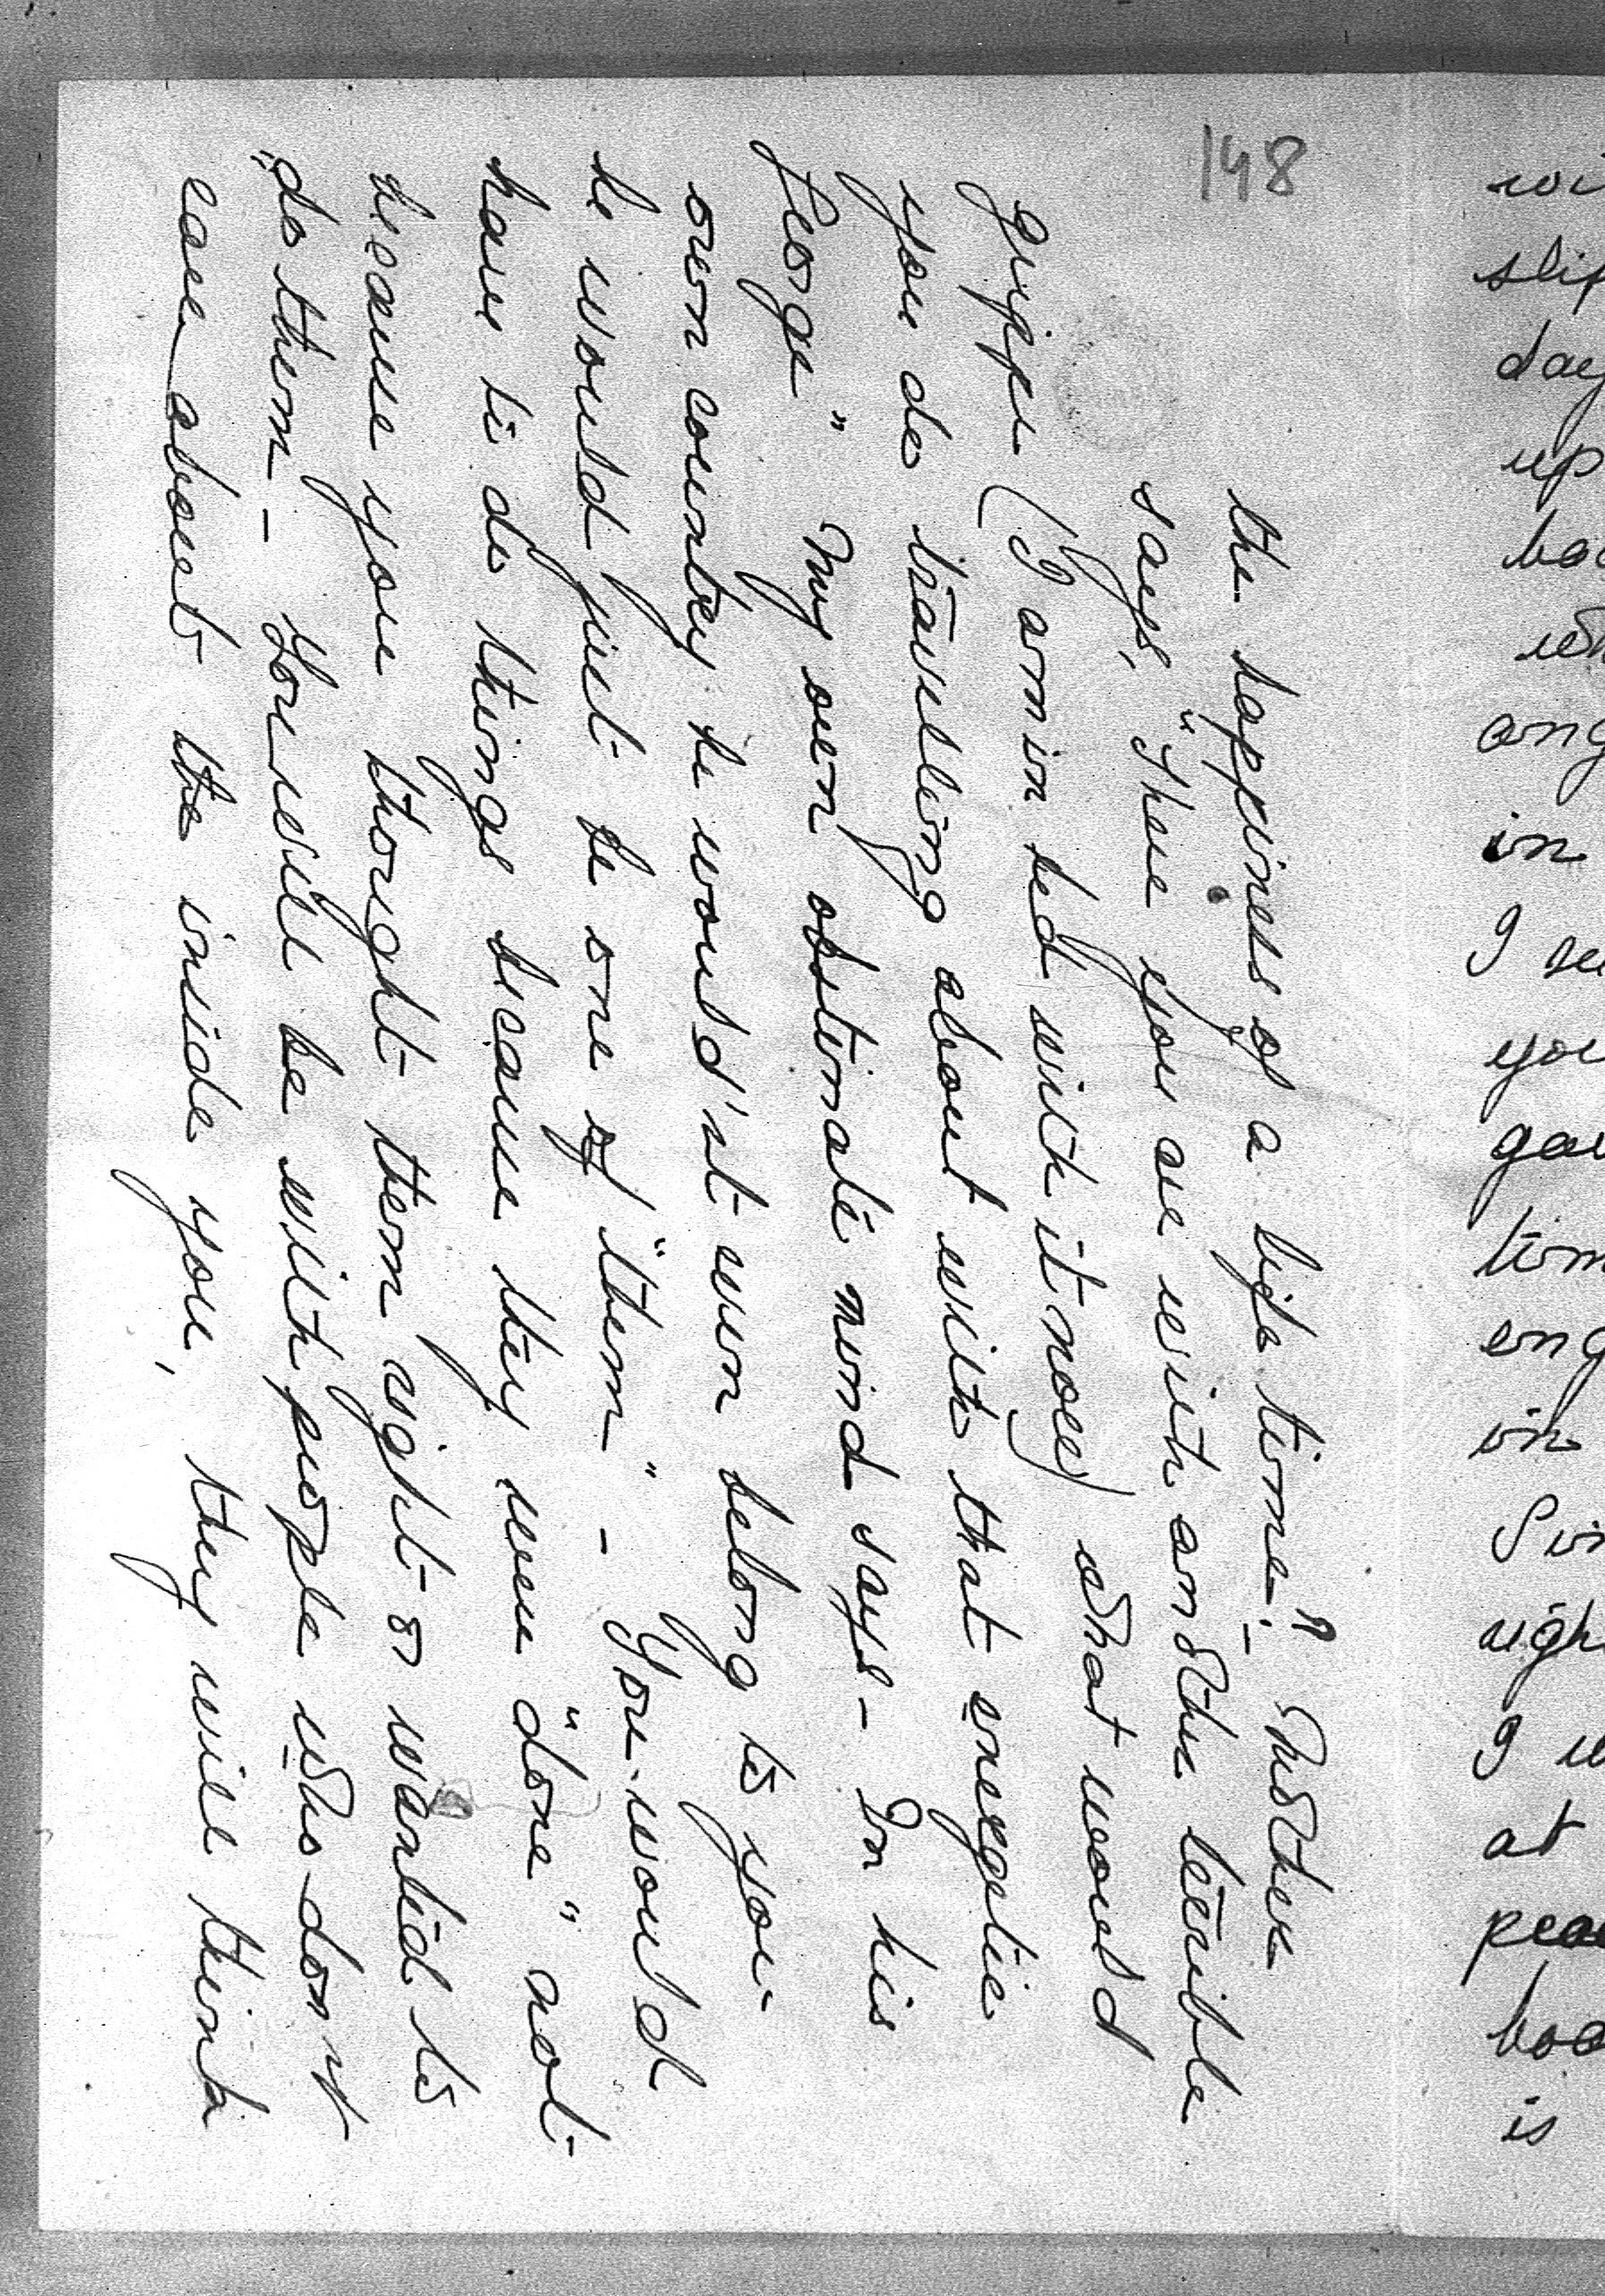 148
the happiness of a life time?- Mother
says, "There you are with another terrible
grippe (I am in bed with it now) what would
you do travelling about with that energetic
George" My own obstinate mind says - In his
own country he would'nt even belong to you
he would just be one of "them" - You would
have to do things because they were "done" not
because you thought them right or wanted to
do them - You will be with people who don't
care about the inside you, they will think
wi
slip
day
up
ha
wh
ang
in
I se
you
gav
tim
eng
in
Sin
righ
I w
at
pea
hoo
is